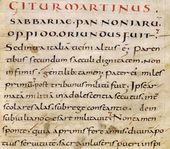 CITUR MARTINUS
SABBARIAE PANNONIARU
OPPIDO ORIUNDUS FUIT
Sed intra italia ticini altus e paren
tibus secundum saeculi dignitatem non
infimis gentilib tamen pater ei miles
primum post tribunus militu fuit Ipse ar
mata militia in adulescentia secutus in
scolares alas sub rege constantio dein
sub iuliano caesare militavit Non tamen
sponte quia a primis fere annis divina poti
servitute